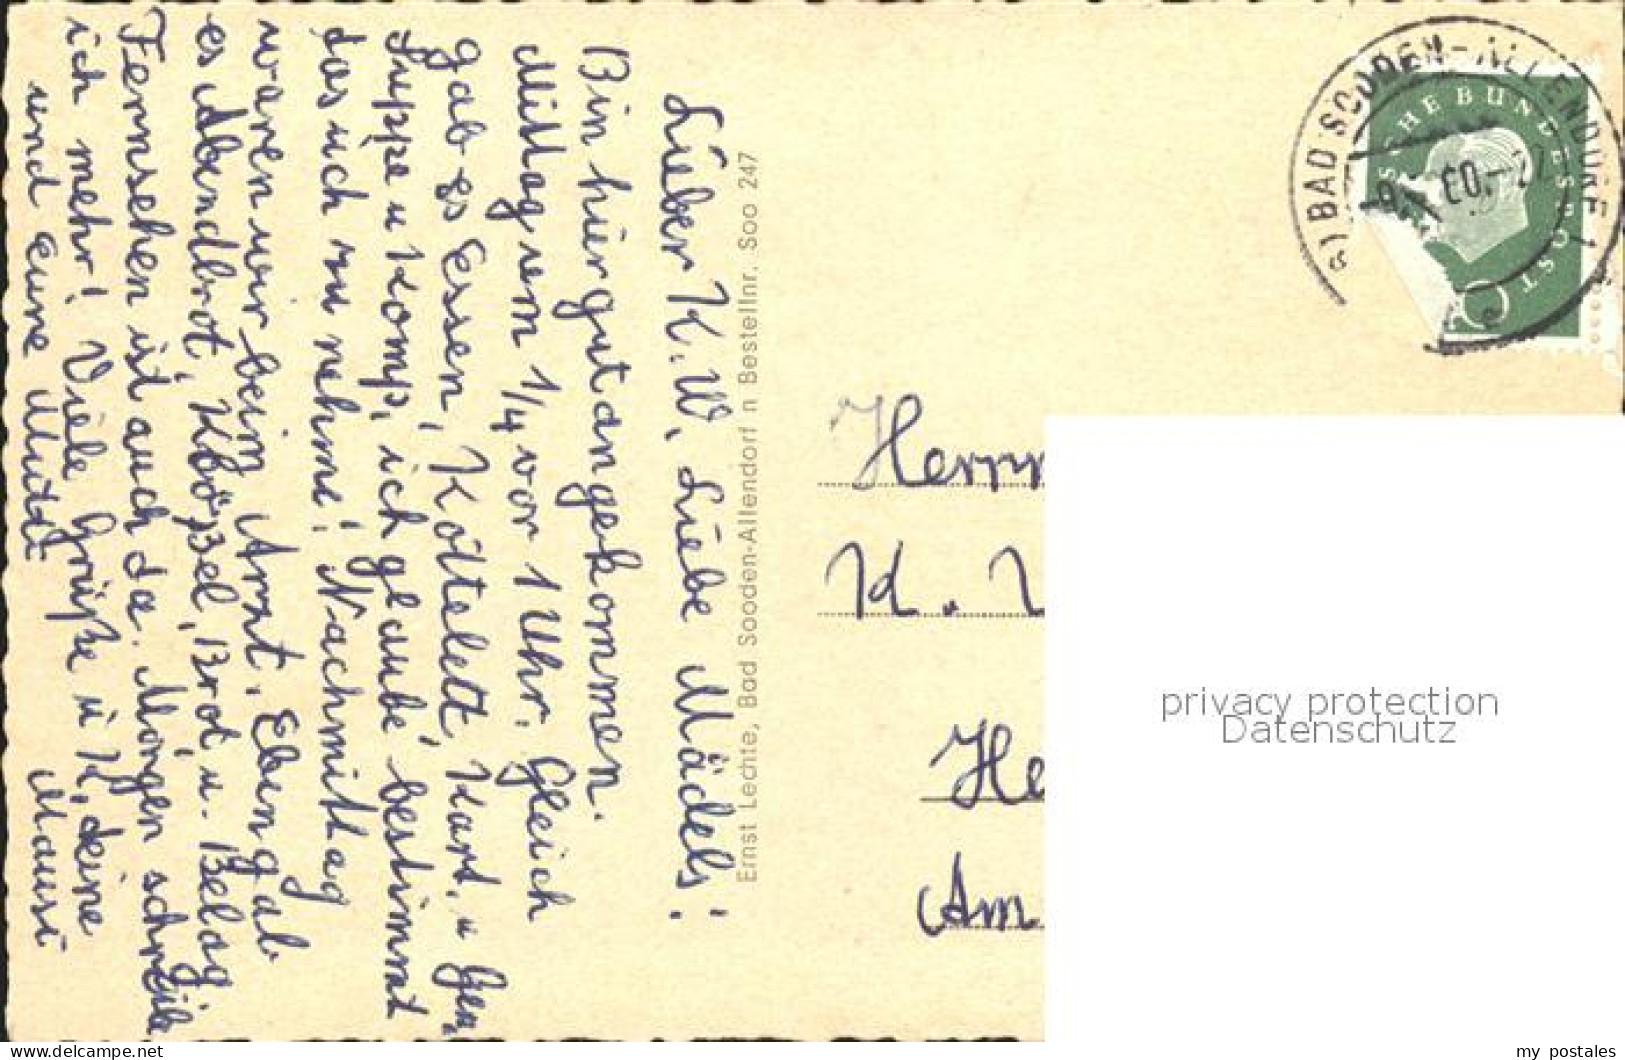 Lieber K.W, Liebe Mädels!
Bin hier gut angekommen.
Mittags um 1/4 vor 1 Uhr. Gleich
gab es Essen, Kottelett, Kart. u Gem.
Suppe u Komp, ich glaube bestimmt
das ich zu nehme! Nachmittag
waren wir beim Arzt. Eben gab
es Abendbrot, Brot u. Belag
Fernsehen ist auch da. Morgen schreibe
ich mehr! Viele Grüße u K, deine Mausi
und eure Mutti
Ernst Lechte, Bad Sooden-Allendorf n Bestellnr. Soo 247
BAD SOODEN-ALLENDORF 1
DEUTSCHE BUNDESPOST
10
Herrn
K.
He
Am
privacy protection
Datenschutz
my postales
https://www.delcampe.net